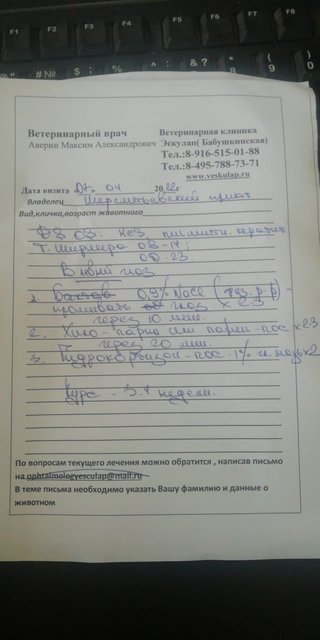 F1 F2 F3 F4 F5 F6 F7 F8
Ветеринарный врач
Аверин Максим Александрович
Ветеринарная клиника
Эскулап( Бабушкинская)
Тел.:8-916-515-01-88
Тел.:8-495-788-73-71
www.veskulap.ru
Дата визита 07 » 04 2022г
Владелец Шереметьевский приют
Вид,кличка,возраст животного
DS OS: Кез пигментн. кератит
Т. Ширмера OS-14;
OD-23
В левый глаз
1. 0,9% NaCl (физ. р-р) -
промывать глаз х 2 3
через 10 мин.
2. Хило-парин или парин-пос х 2 3
через 20 мин.
3. Гидрокортизон-пос - 1% г. мазь х 2
Курс - 3-4 недели.
По вопросам текущего лечения можно обратится , написав письмо
на ophtalmologyesculap@mail.ru
В теме письма необходимо указать Вашу фамилию и данные о
животном